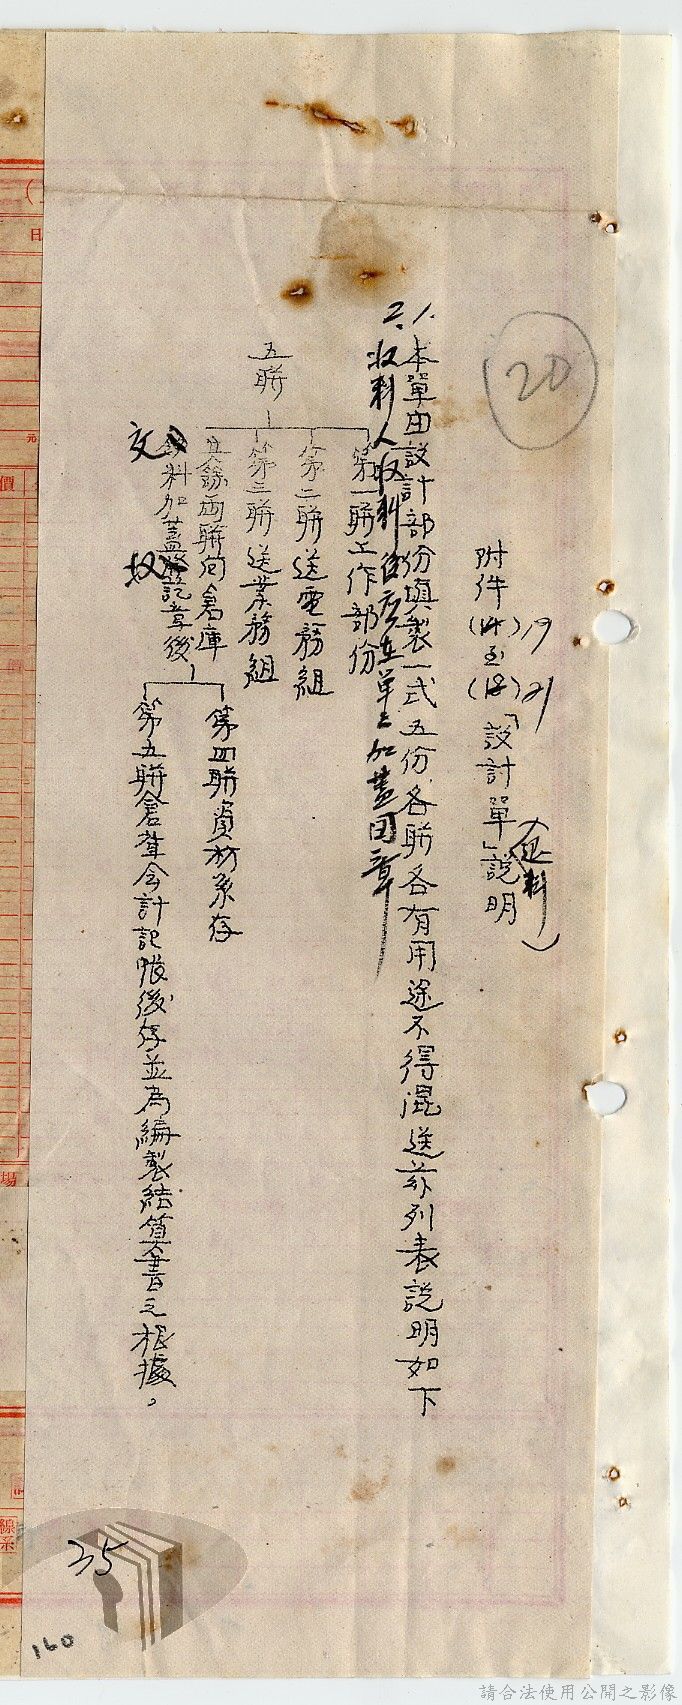 20
附件(19)至(21)「設計單」說明
(退料)
1. 本單由設計部份填製一式五份各聯各有用途不得混送茲列表說明如下
2. 收料人收料後應在單上加蓋圖章
五聯
第一聯工作部份
第二聯送電務組
第三聯送業務組
其餘兩聯向倉庫
交料加蓋登記章後
收
第四聯資材系存
第五聯倉庫會計記賬後存並為編製結算書之根據。
35
160
日
元
價
場
線系
請合法使用公開之影像